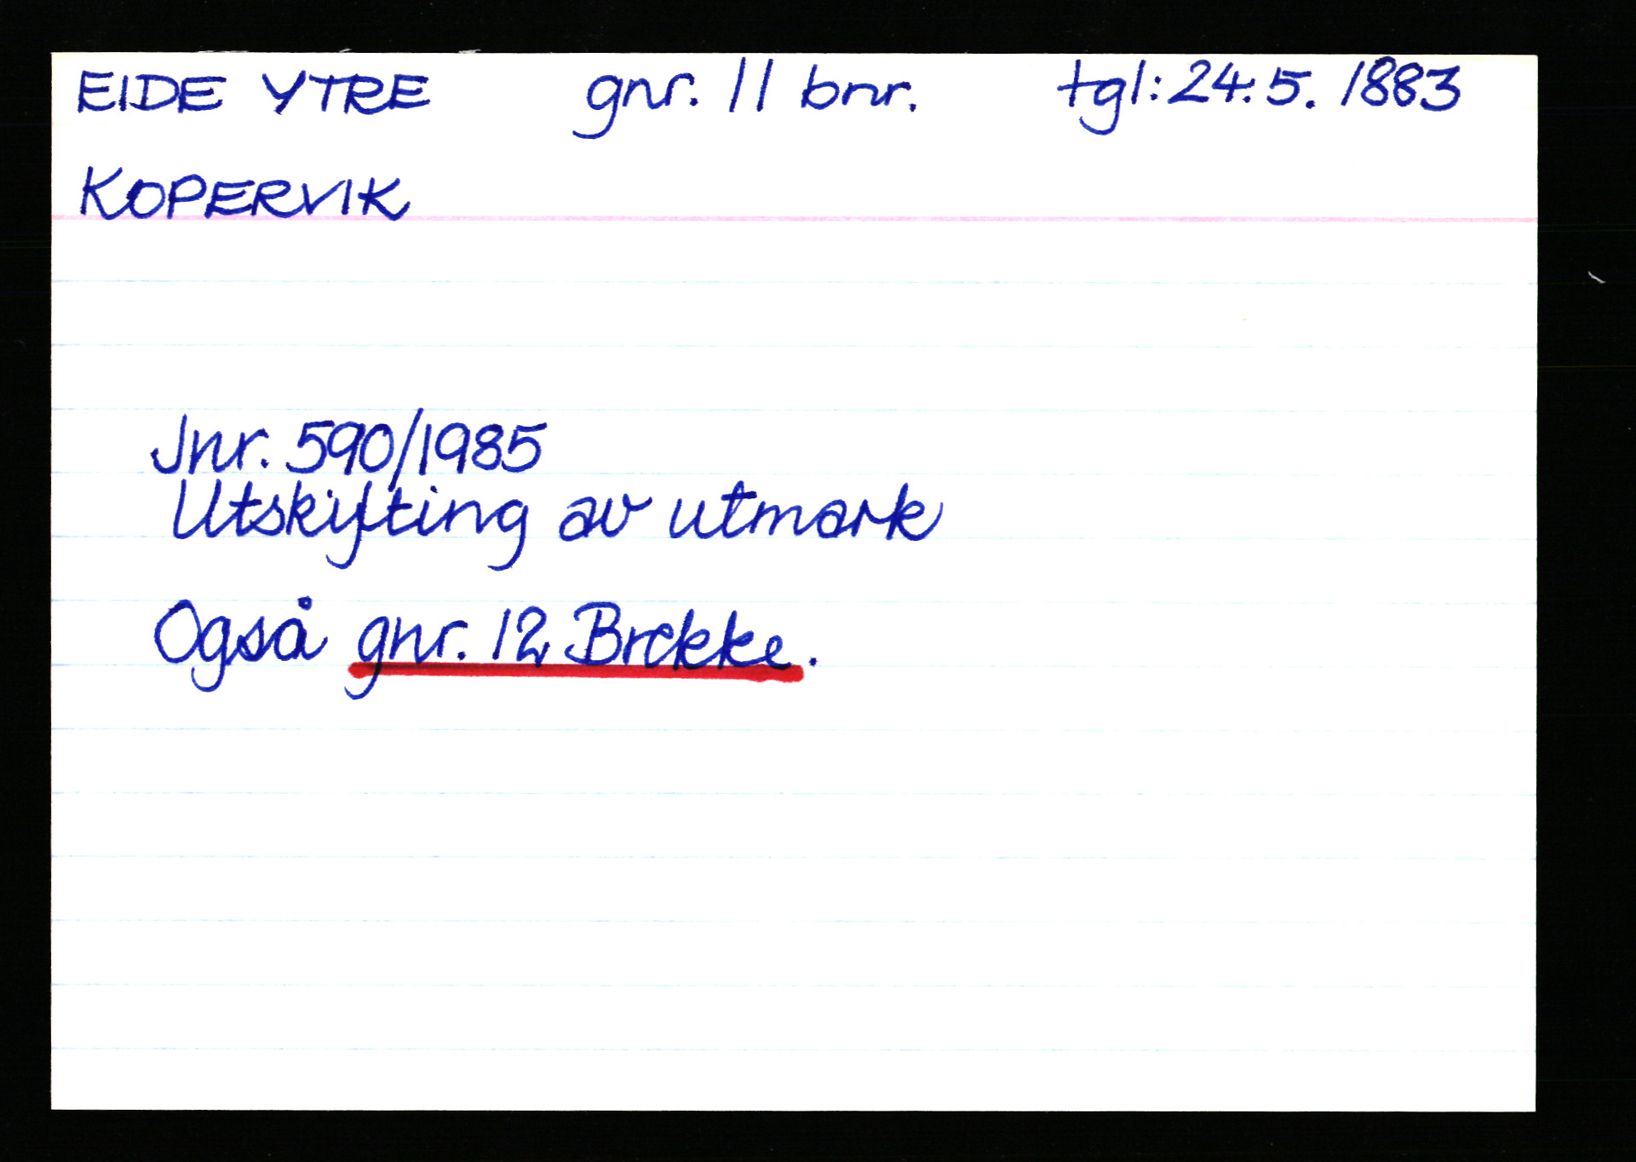 EIDE YTRE gnr. 11 bnr. tgl: 24.5. 1883
KOPERVIK
Jnr. 590/1985
Utskifting av utmark
Også gnr. 12 Brekke.